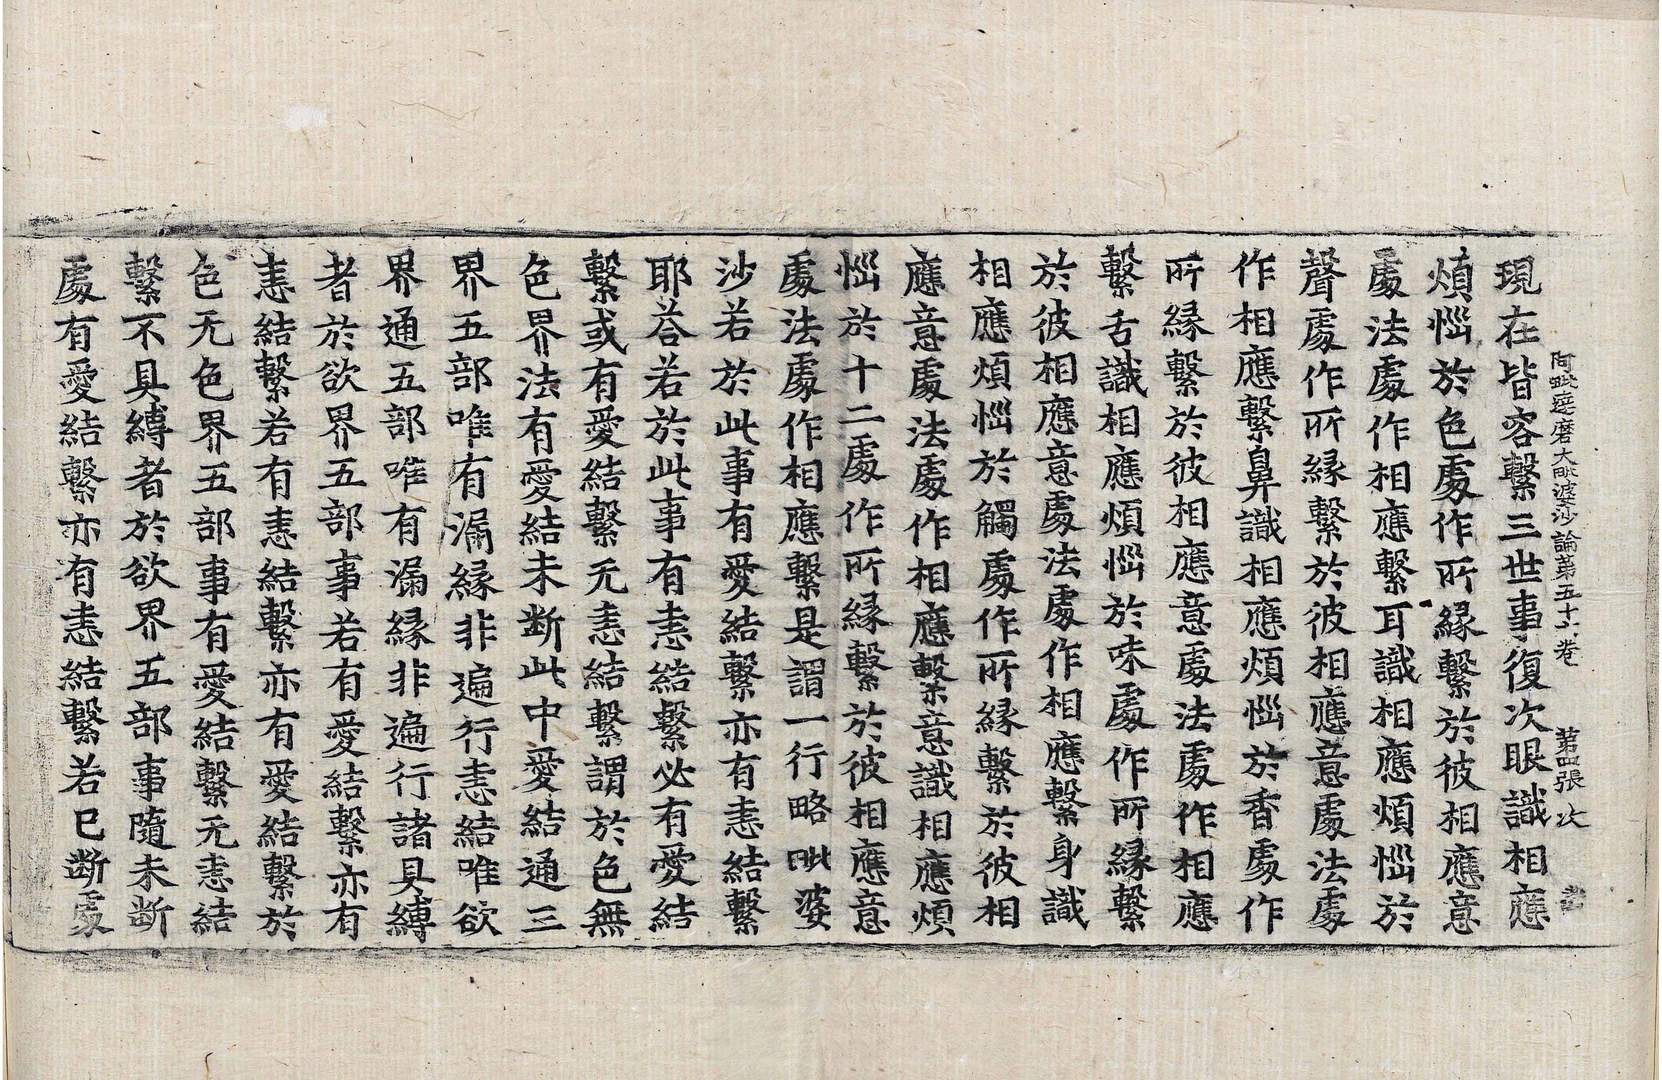 阿毗達磨大毗婆沙論第五十六卷 第四張 次
現在皆容繫三世事復次眼識相應
煩惱於色處作所緣繫於彼相應意
處法處作相應繫耳識相應煩惱於
聲處作所緣繫於彼相應意處法處
作相應繫鼻識相應煩惱於香處作
所緣繫於彼相應意處法處作相應
繫舌識相應煩惱於味處作所緣繫
於彼相應意處法處作相應繫身識
相應煩惱於觸處作所緣繫於彼相
應意處法處作相應繫意識相應煩
惱於十二處作所緣繫於彼相應意
處法處作相應繫是謂一行略毗婆
沙若於此事有愛結繫亦有恚結繫
耶荅若於此事有恚結繫必有愛結
繫或有愛結繫无恚結繫謂於色無
色界法有愛結未断此中愛結通三
界五部唯有漏緣非遍行恚結唯欲
界通五部唯有漏緣非遍行諸具縛
者於欲界五部事若有愛結繫亦有
恚結繫若有恚結繫亦有愛結繫於
色无色界五部事有愛結繫无恚結
繫不具縛者於欲界五部事隨未断
處有愛結繫亦有恚結繫若已断處